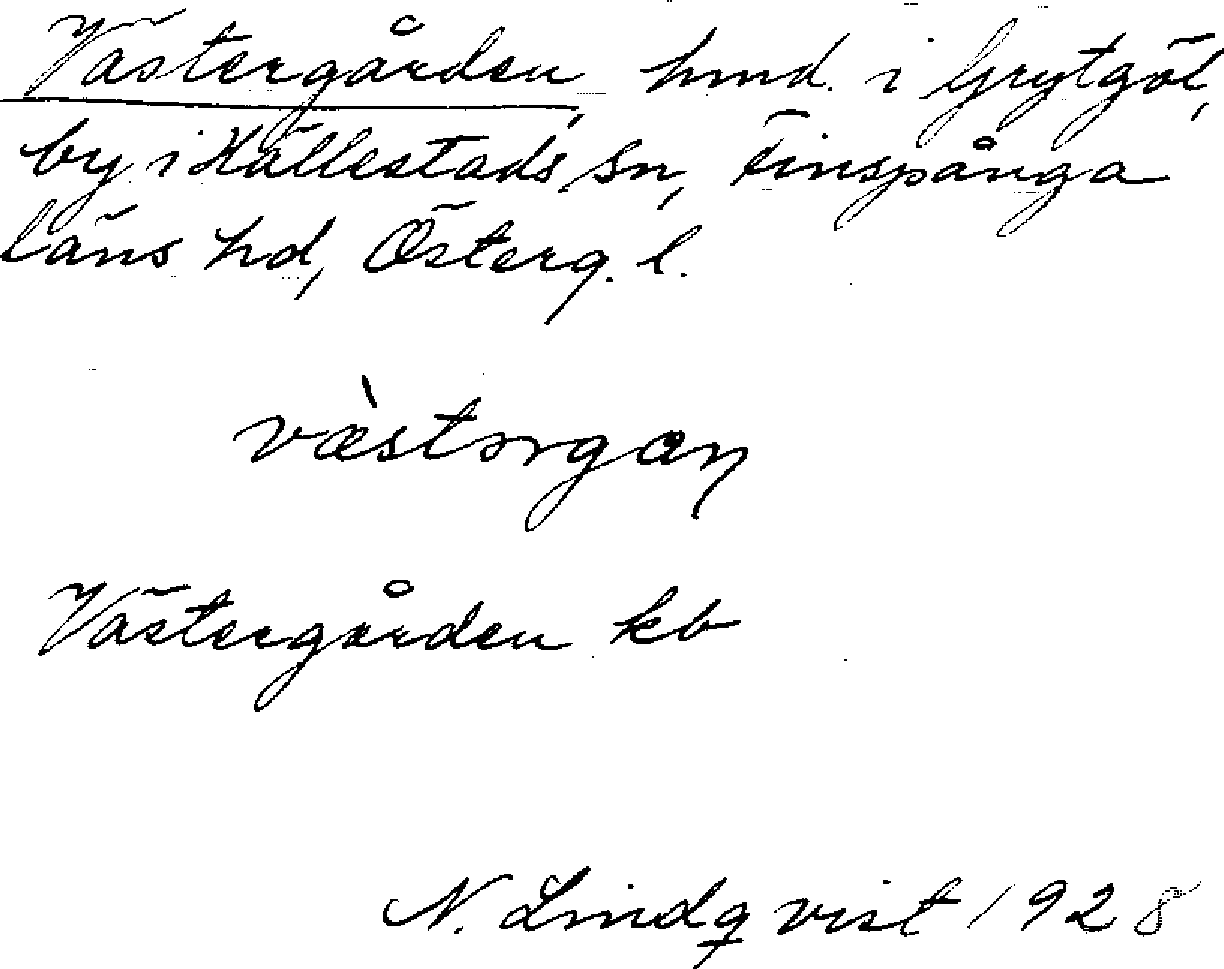 Västergården, hmd. i Grytgöl,
by i Hällestads sn, Finspånga
läns hd, Österg. l.
væ̀stərgaɳ
Västergården kb
N. Lindqvist 1928